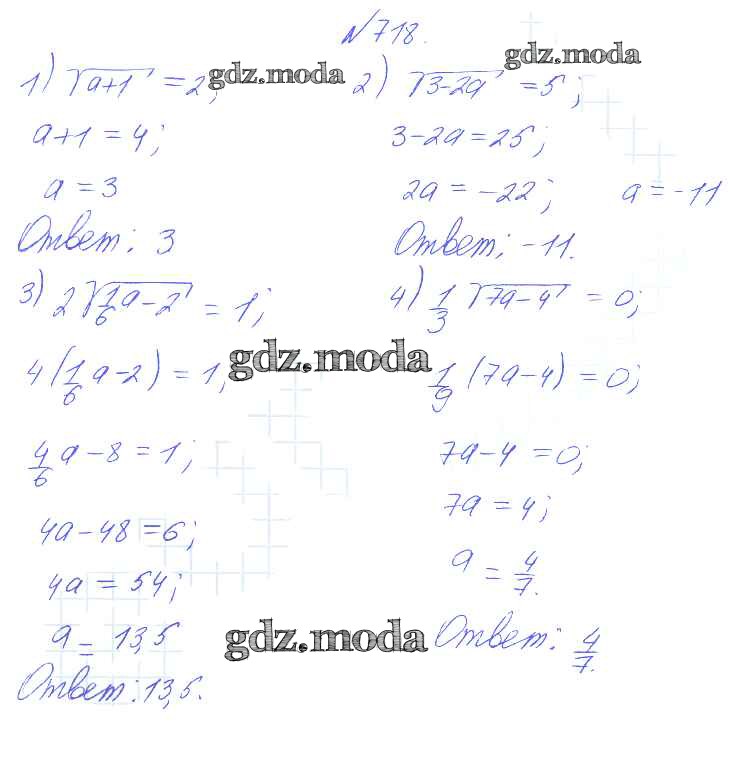 №718.
1) √(a+1) = 2;
a+1 = 4;
a = 3
Ответ: 3
2) √(3-2a) = 5;
3-2a = 25;
2a = -22; a = -11
Ответ: -11.
3) 2√(1/6 a - 2) = 1;
4(1/6 a - 2) = 1;
4/6 a - 8 = 1;
4a - 48 = 6;
4a = 54;
a = 13,5
Ответ: 13,5.
4) 1/3 √(7a-4) = 0;
1/9 (7a-4) = 0;
7a-4 = 0;
7a = 4;
a = 4/7.
Ответ: 4/7.
gdz.moda
gdz.moda
gdz.moda
gdz.moda